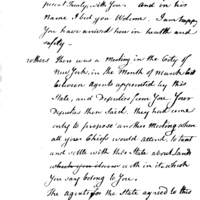 present Treaty, with You. and in his
Name I bid you Welcome. I am happy
You have arrived here in health and
safety.
Brothers There was a Meeting in the City of
New York, in the Month of March last
between agents appointed by this
State, and Deputies from You. Your
Deputies then said they had come
only to propose another Meeting when
all your Chiefs would attend to treat
and settle with this State about Lands
with in its which
You say belong to You.
The agents for the State agreed to this